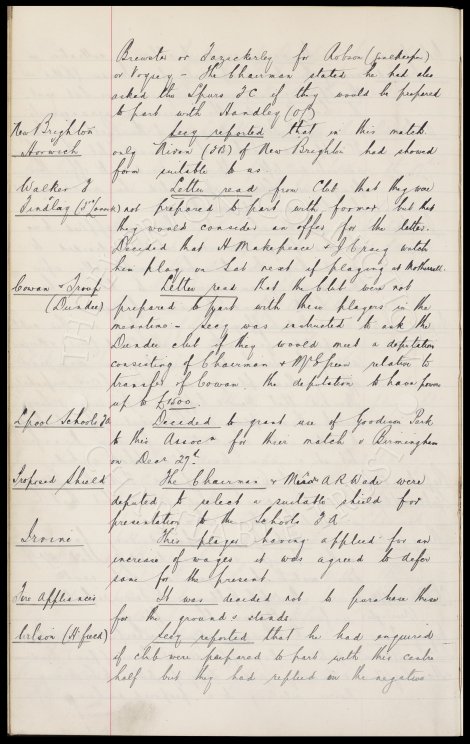 Brewster or Tazickerley for Robson (Goalkeeper)
or Vogwy - The Chairman stated he had also
asked the Spurs FC if they would be prepared
to part with Handley (OF)
New Brighton Secy reported that in this match
Horwich only Rivon (FB) of New Brighton had showed
form suitable to us.
Walker & Letter read from Club that they were
Findlay (St Mirren K) not prepared to part with former but that
they would consider an offer for the latter.
Decided that H Makepeace & J Craig watch
him play on Sat next if playing at Motherwell.
Cowan & Troup Letter read that the Club were not
(Dundee) prepared to part with these players in the
meantime - Secy was instructed to ask the
Dundee club if they would meet a deputation
consisting of Chairman & Mr Green relative to
transfer of Cowan. the deputation to have power
up to £1500.
Lpool Schools FA Decided to grant use of Goodison Park
to this Assocn for their match v Birmingham
on Decr 29th.
Proposed Shield The Chairman & A R Wade were
deputed to select a suitable shield for
presentation to the Schools F A
Irvine This player having applied for an
increase of wages it was agreed to defer
same for the present.
Fire Appliances It was decided not to purchase these
for the ground & stands
Wilson (H'field) Secy reported that he had enquired
if club were prepared to part with this centre
half but they had replied in the negative